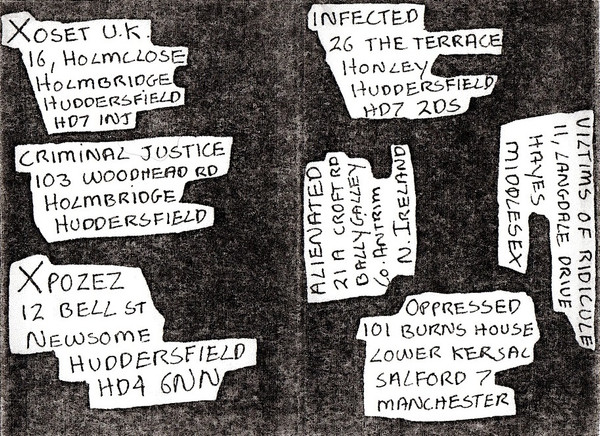 XOSET U.K
16, HOLMCLOSE
HOLMBRIDGE
HUDDERSFIELD
HD7 1NJ
CRIMINAL JUSTICE
103 WOODHEAD RD
HOLMBRIDGE
HUDDERSFIELD
XPOZEZ
12 BELL ST
NEWSOME
HUDDERSFIELD
HD4 6NN
INFECTED
26 THE TERRACE
HONLEY
HUDDERSFIELD
HD7 2DS
ALIENATED
21A CROFT RD
BALLYGALLEY
CO. ANTRIM
N. IRELAND
VILTIMS OF RIDICULE
11, LANGDALE DRIVE
HAYES
MIDDLESEX
OPPRESSED
101 BURNS HOUSE
LOWER KERSAL
SALFORD 7
MANCHESTER